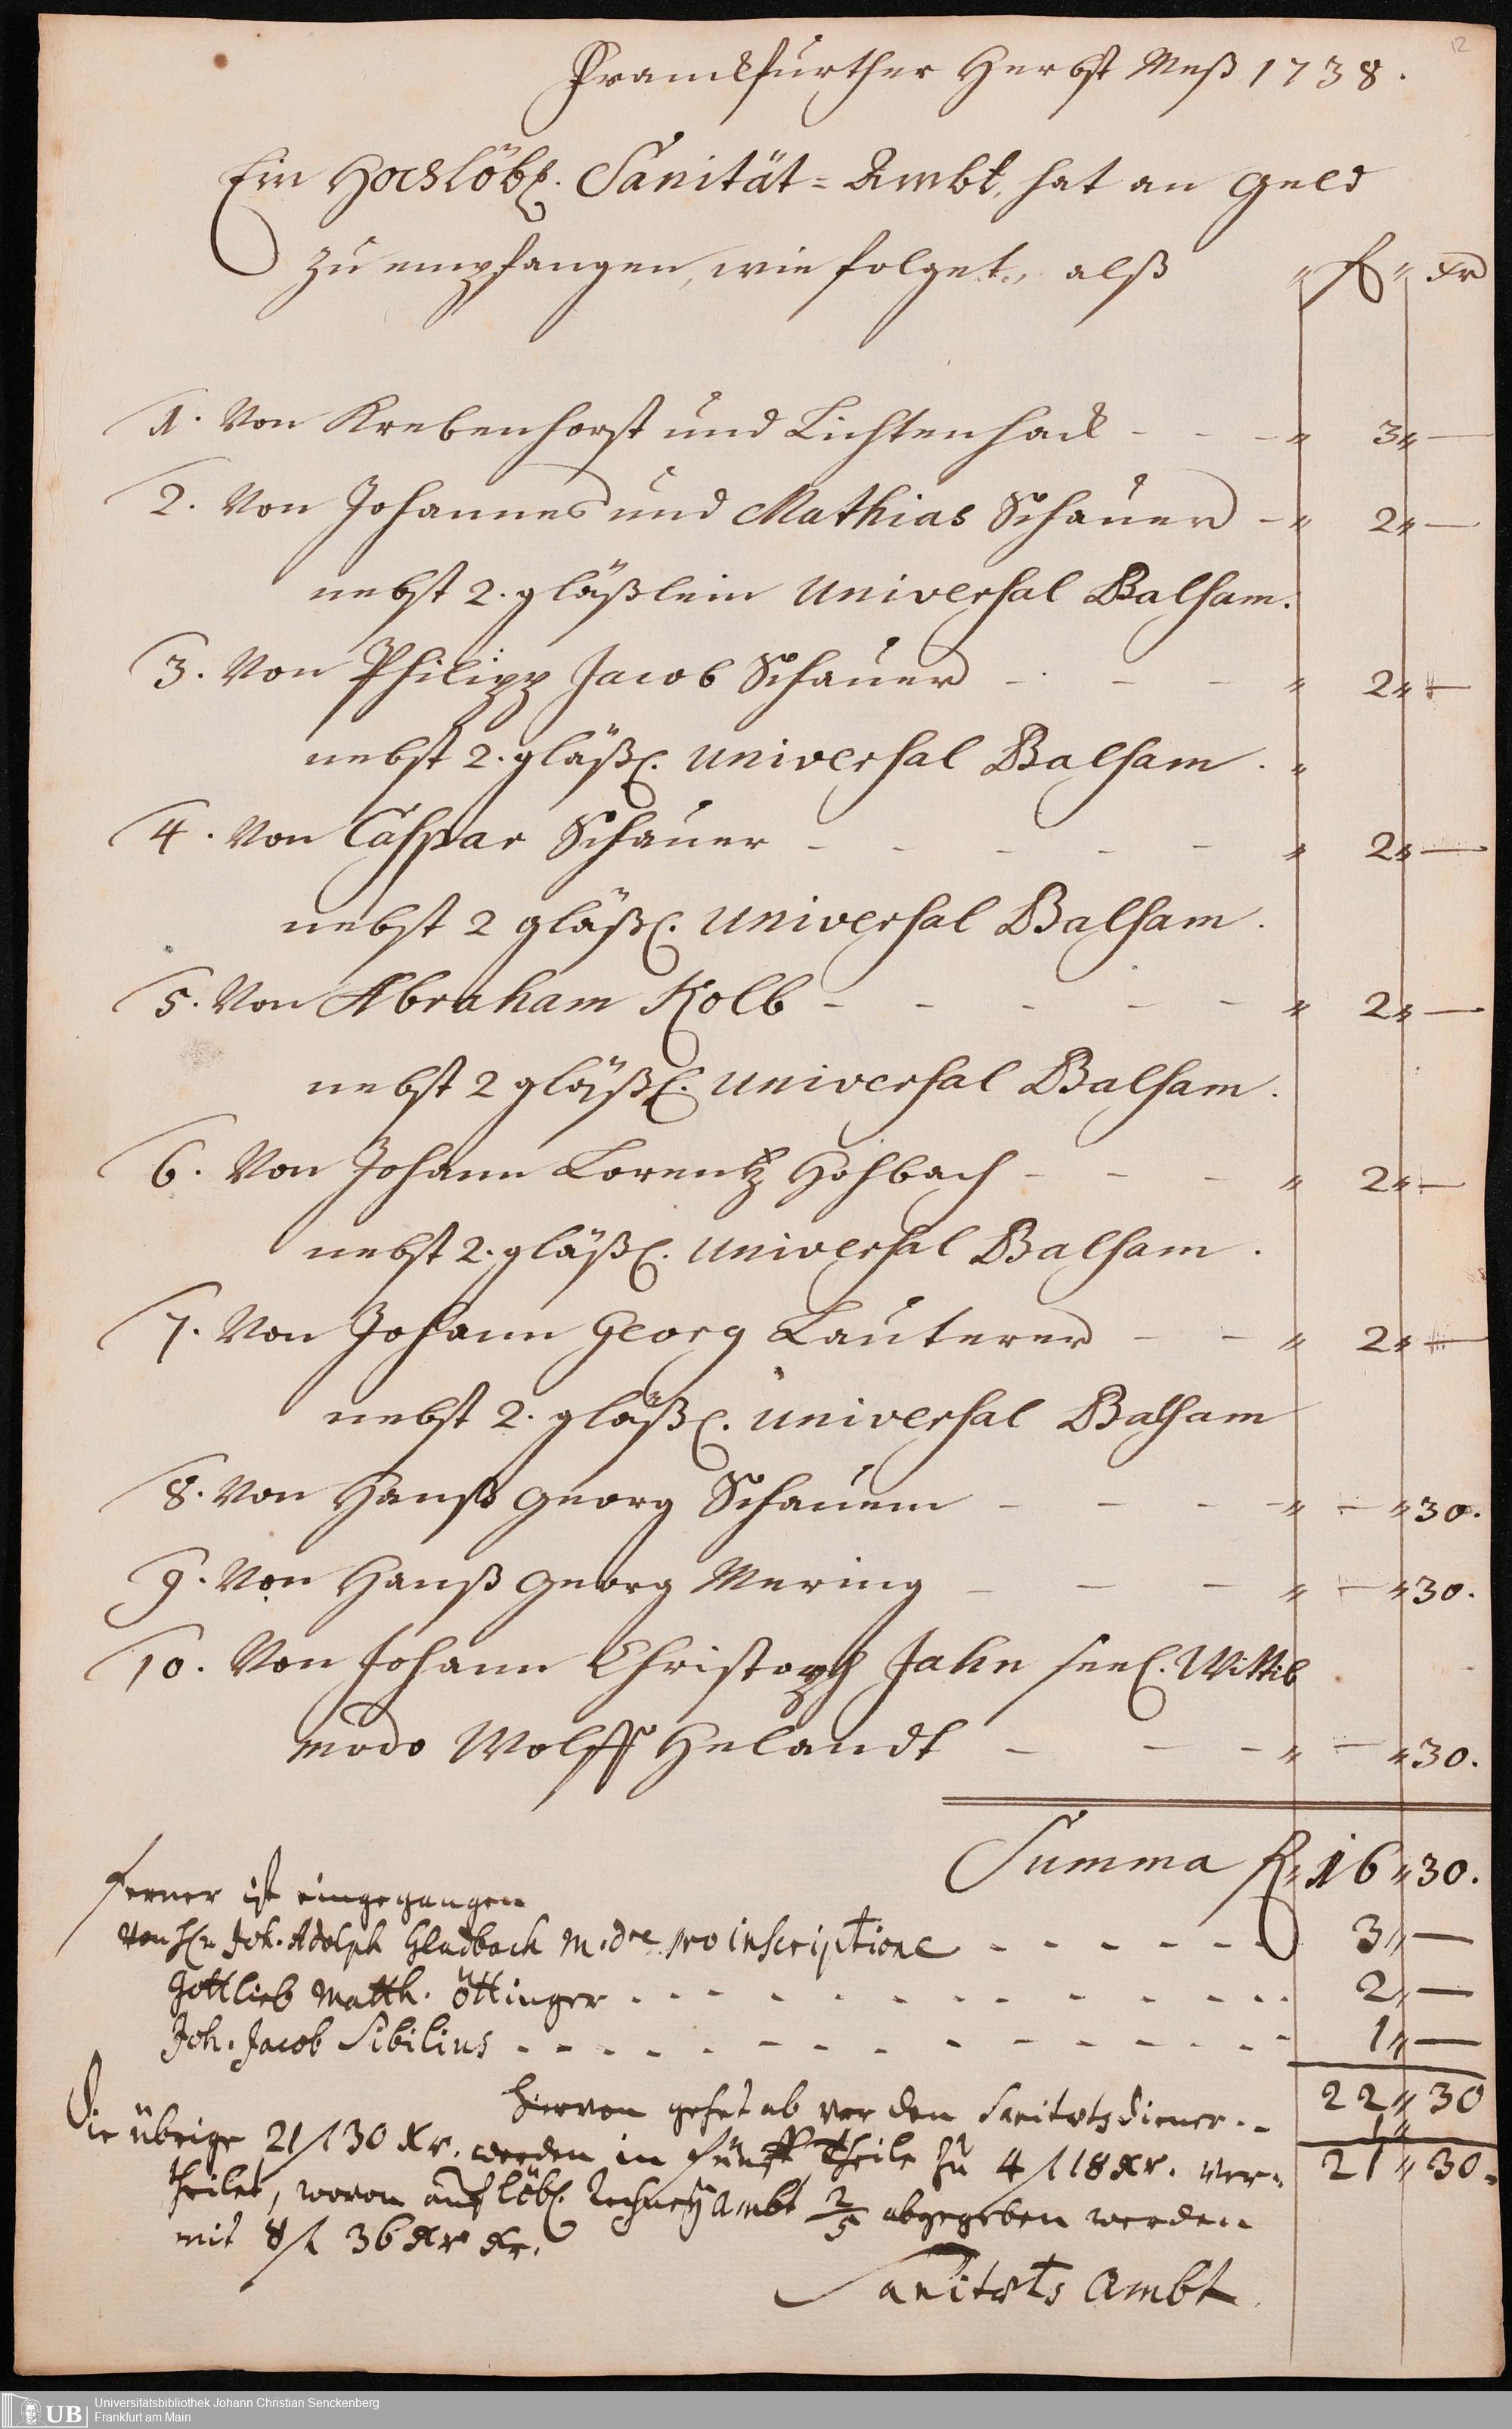 12
Franckfurther Herbst Meß 1738.
Ein Hochlöbl. Sanität=Ambt, hat an Geld
zu empfangen, wie folget, alß " f " xr
1. Von Krebenhorst und Lichtenhack - - - " 3 " —
2. Von Johannes und Mathias Schauer - " 2 " —
nebst 2. gläßlein Universal Balsam.
3. Von Philipp Jacob Schauer - - - " 2 " —
nebst 2. gläßl. Universal Balsam. "
4. Von Caspar Schauer - - - - - " 2 " —
nebst 2 gläßl. Universal Balsam.
5. Von Abraham Kolb - - - - - " 2 " —
nebst 2 gläßl. Universal Balsam.
6. Von Johann Lorentz Hohbach - - - " 2 " —
nebst 2. gläßl. Universal Balsam.
7. Von Johann Georg Lauterer - - " 2 " —
nebst 2. gläßl. Universal Balsam
8. Von Hanß Georg Schauern - - - - " — " 30.
9. Von Hanß Georg Mering - - - " — " 30.
10. Von Johann Christoph Jahn seel. Wittib
modo Wolff Helandt - - - " — " 30.
Summa f " 16 " 30.
ferner ist eingegangen
von H. Joh. Adolph Gladbach M. dre pro inscriptione - - - - - - 3 " —
Gottlieb Matth. Öttinger - - - - - - 2 " —
Joh. Jacob Sibilius - - - - - - 1 " —
22 " 30
hiervon gehet ab vor den Sanitætsdiener - - 1 "
21 " 30.
Die übrige 21 f 30 xr. werden in fünff Theile zu 4 f 18 xr. ver=
theilet, wovon auf löbl. Rechney Ambt 2/5 abgegeben werden
mit 8 f 36 xr xr.
Sanitæts Ambt.
UB
Universitätsbibliothek Johann Christian Senckenberg
Frankfurt am Main